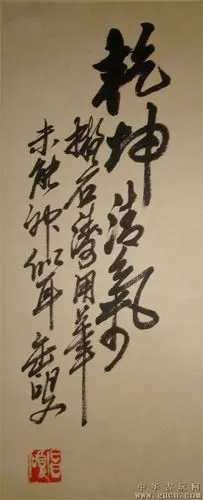 乾坤清氣
拟石濤用筆
未能神似耳 缶叟
中华古玩网
www.gucn.com